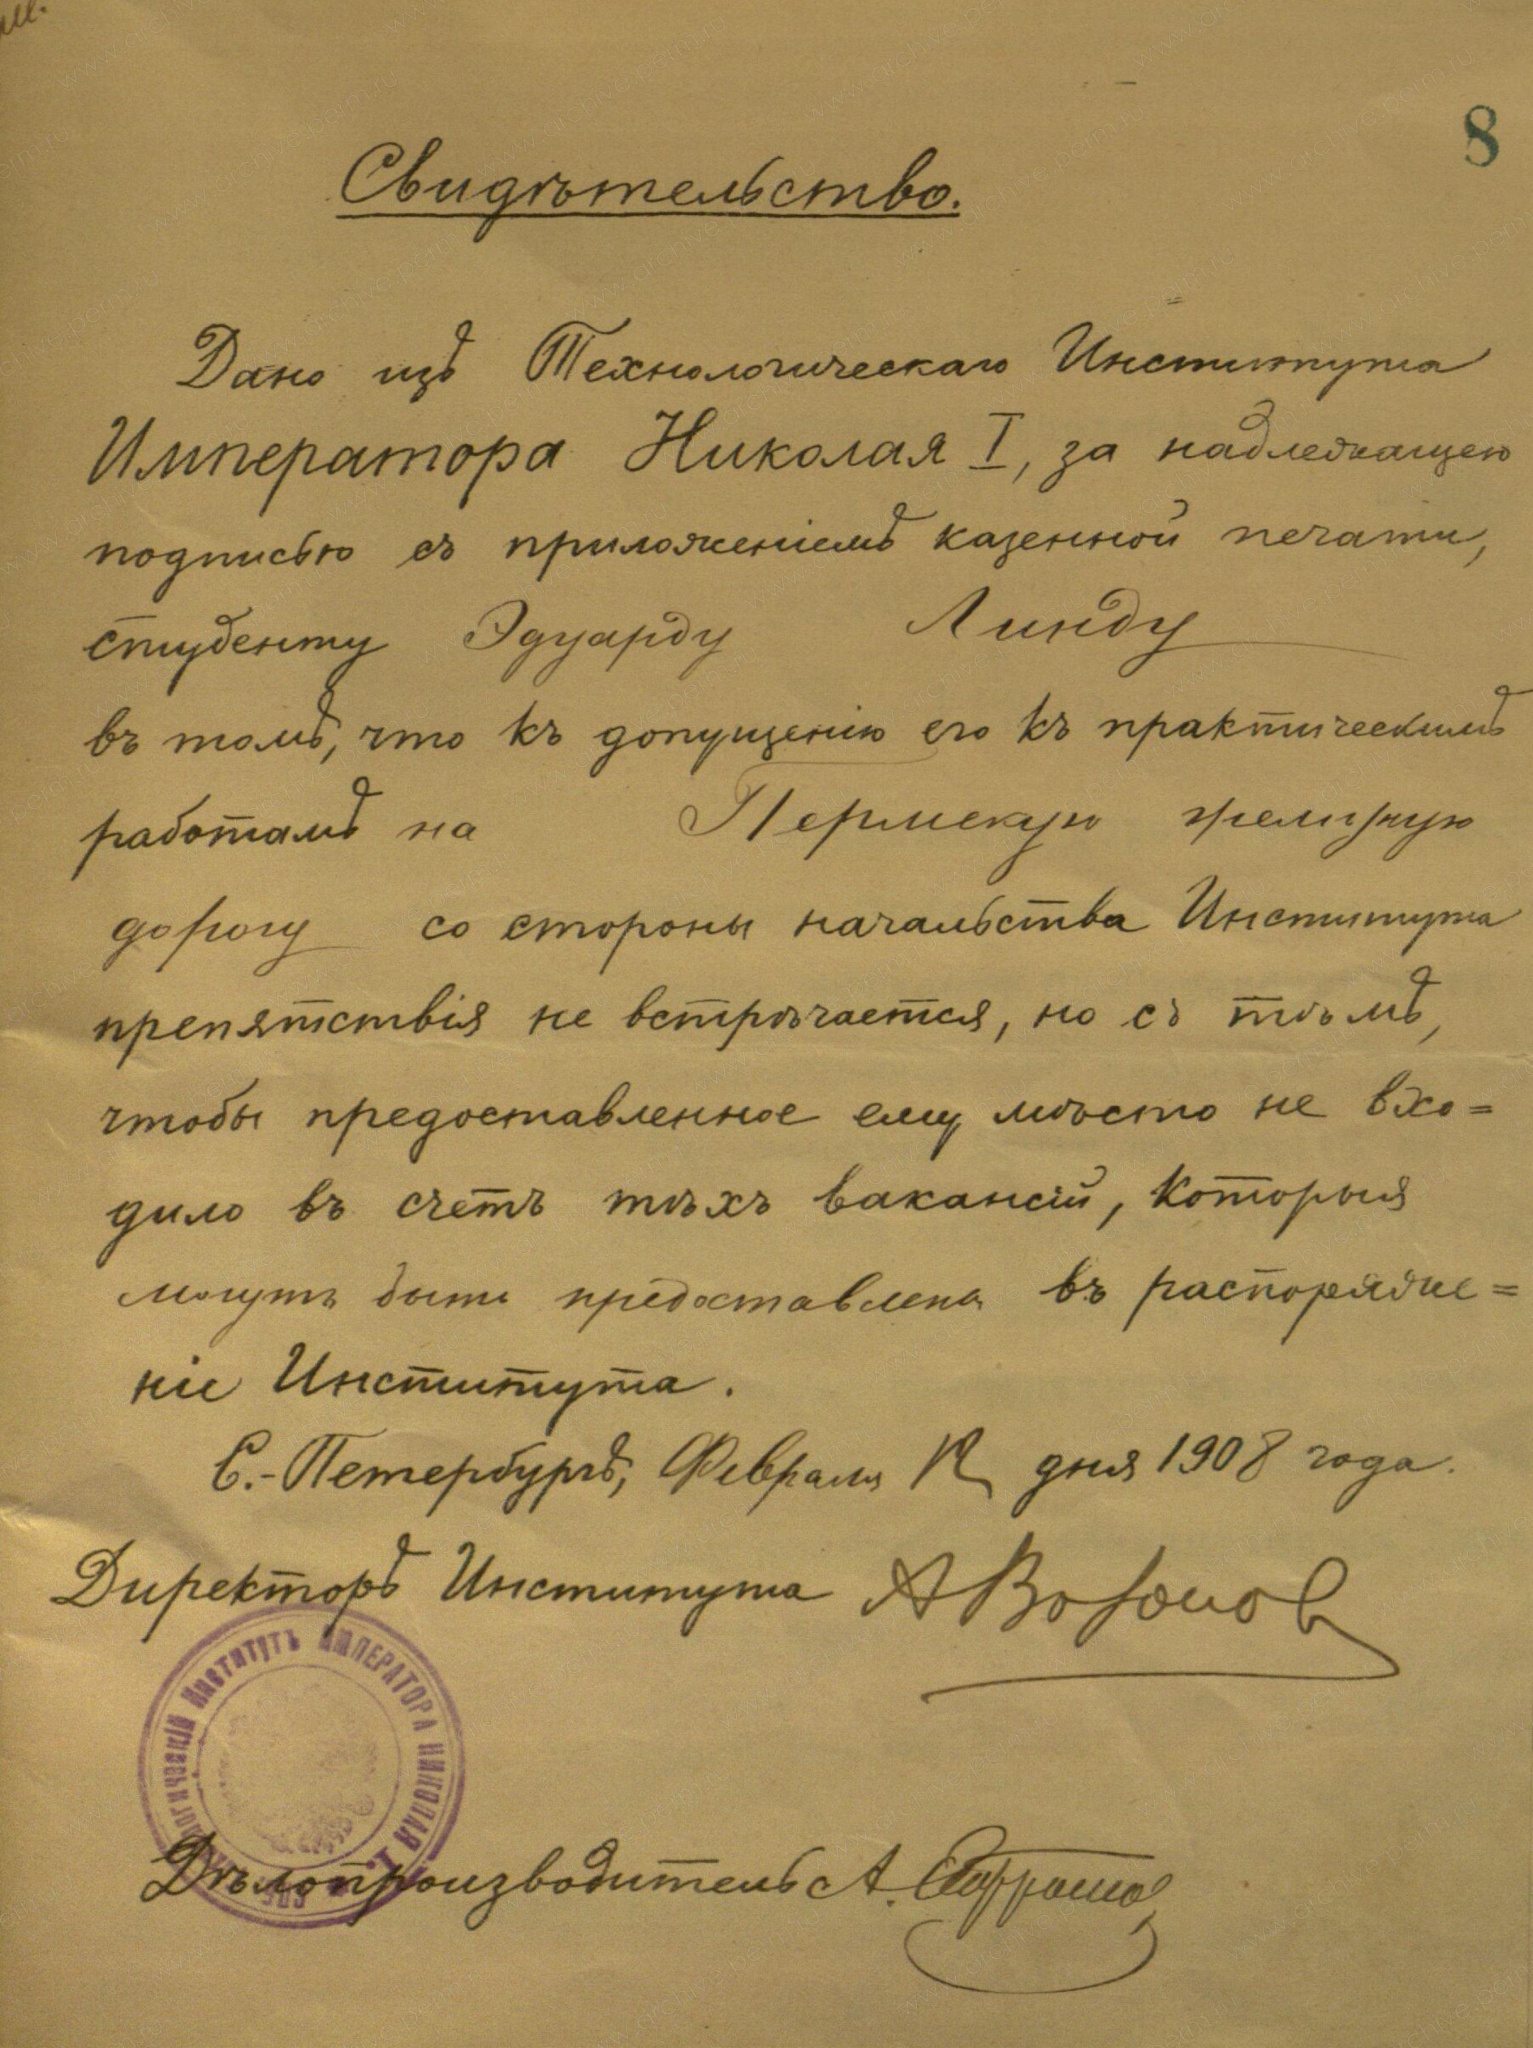 8
Свидѣтельство.
Дано изъ Технологическаго Института
Императора Николая I, за надлежащею
подписью съ приложеніемъ казенной печати,
студенту Эдуарду Линду
въ томъ, что къ допущенію его къ практическимъ
работамъ на Пермскую желѣзную
дорогу со стороны начальства Института
препятствія не встрѣчается, но съ тѣмъ,
чтобы предоставленное ему мѣсто не вхо=
дило въ счетъ тѣхъ вакансій, которыя
могутъ быть предоставлены въ распоряже=
ніе Института.
С.-Петербургъ, Февраля дня 1908 года.
Директоръ Института А Воронов
Технологическій Институтъ Императора Николая I.
Дѣлопроизводитель А.